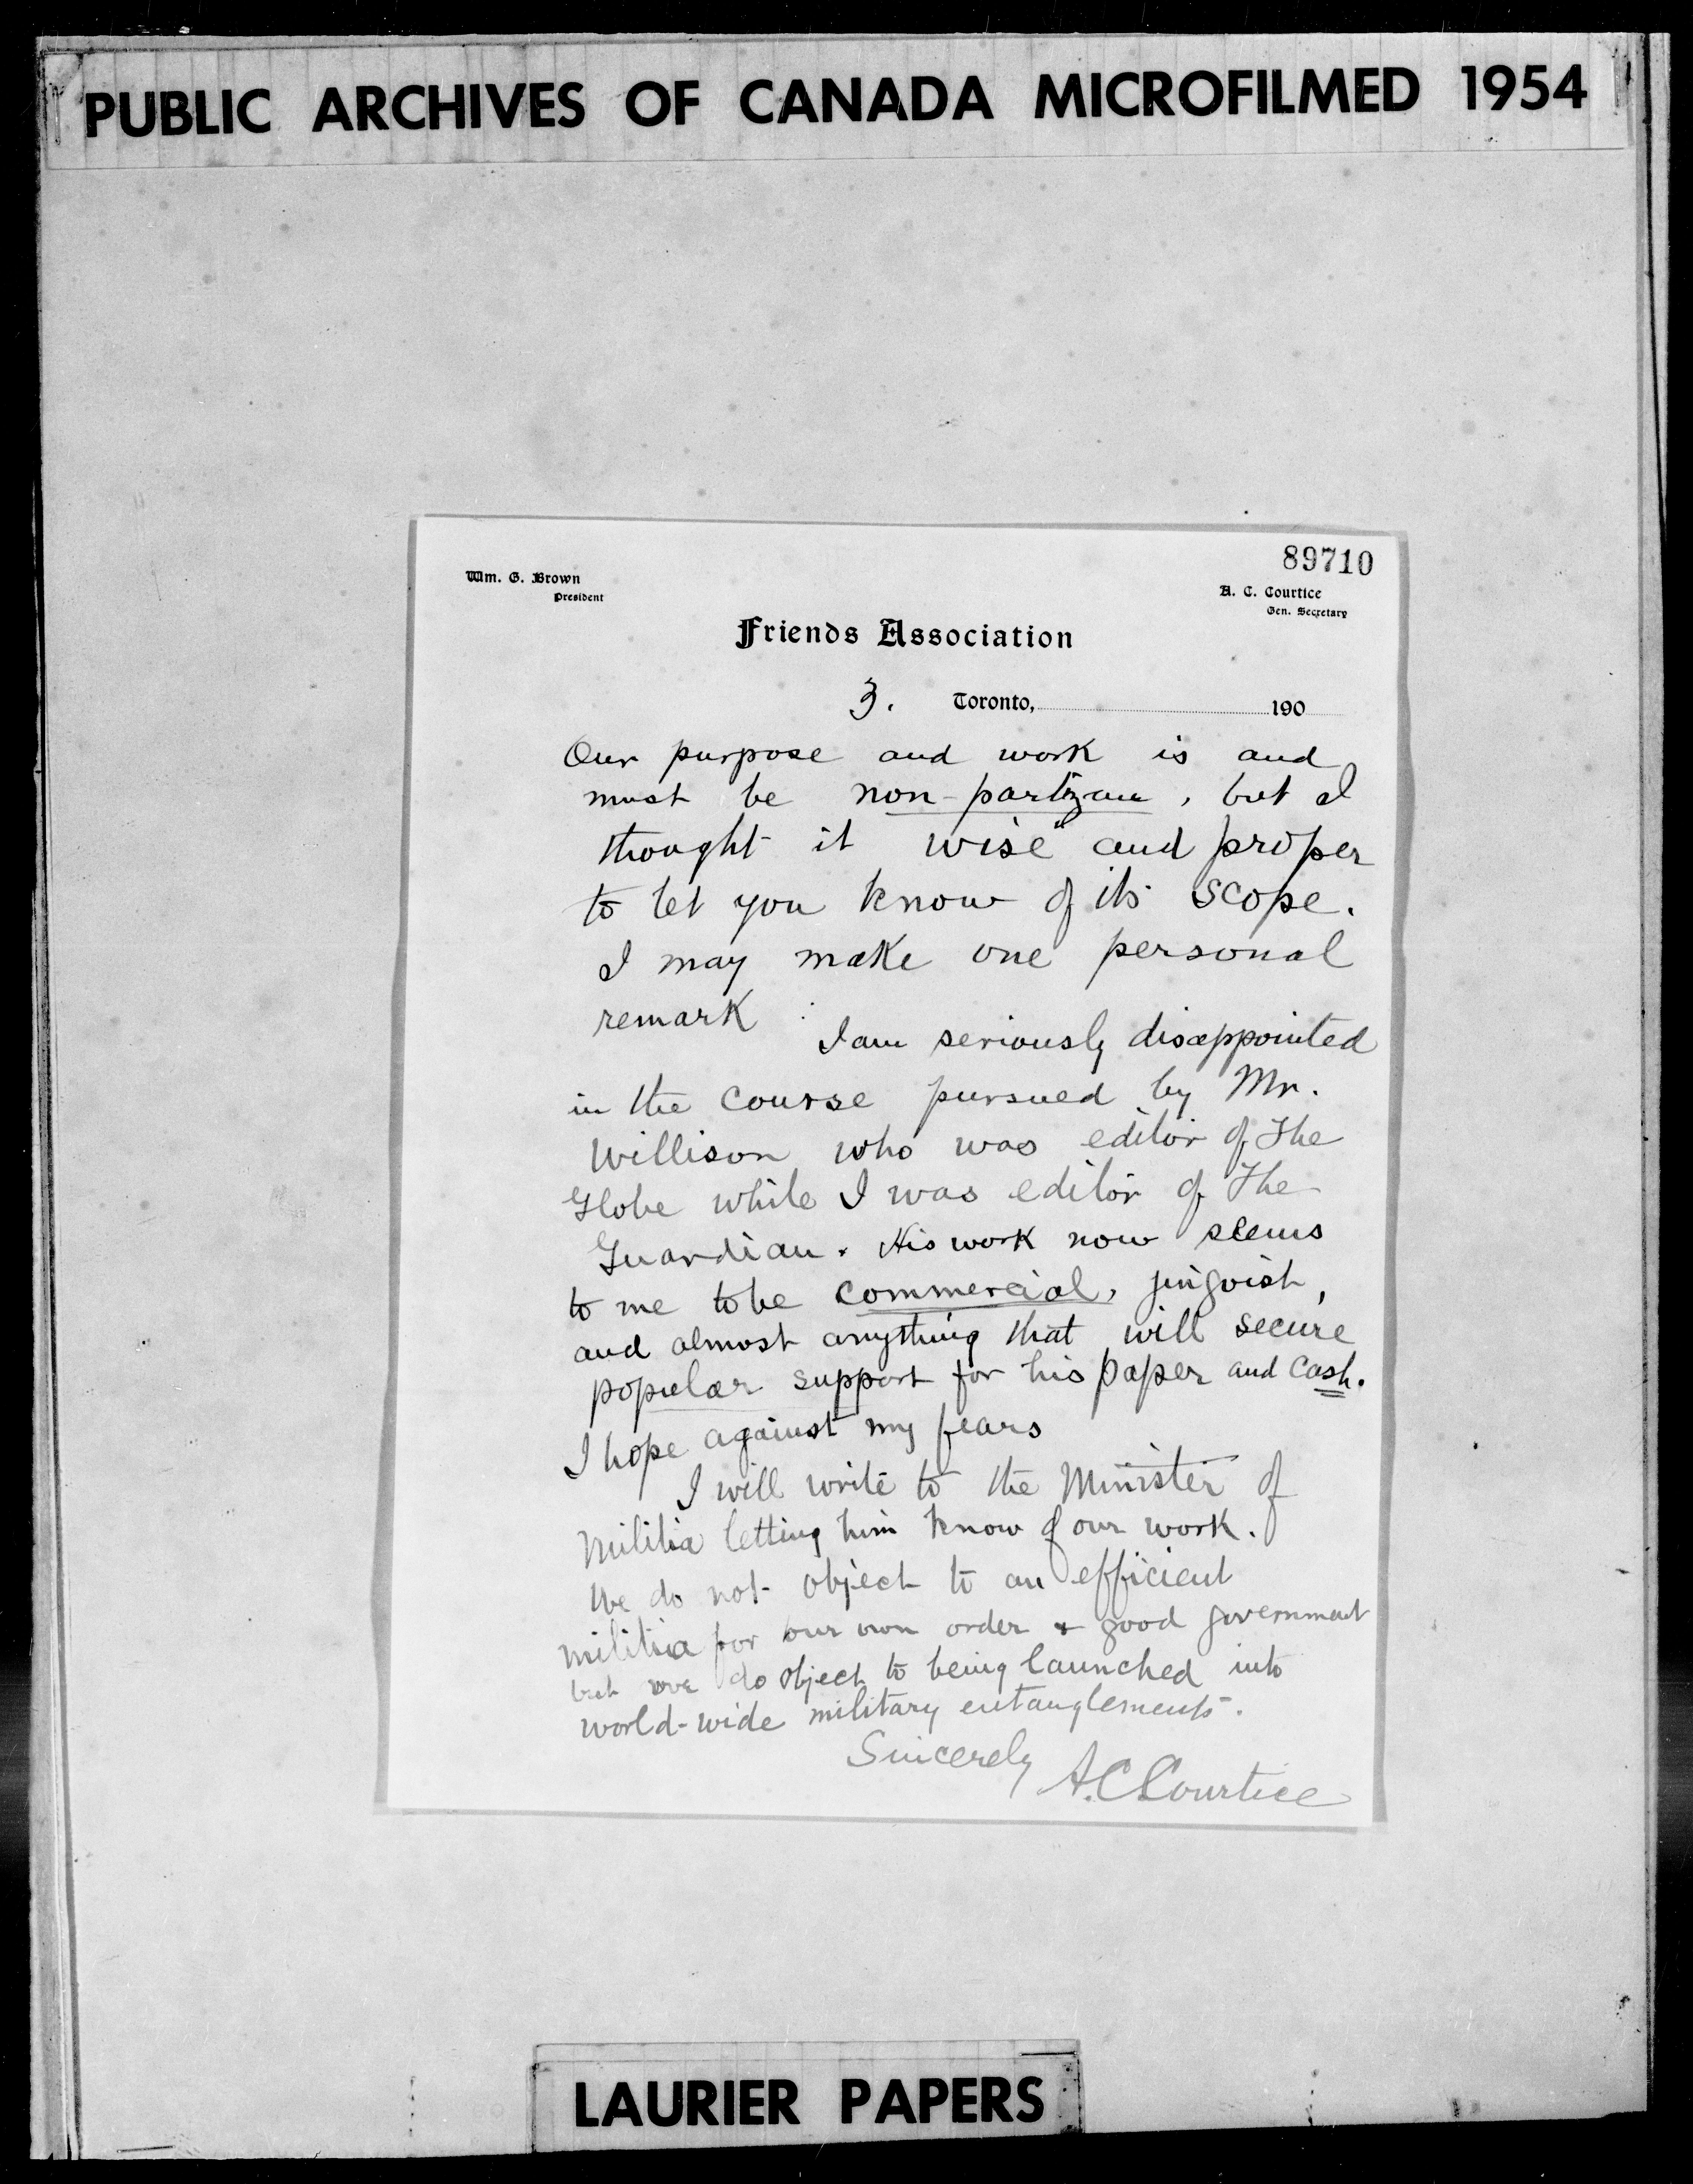 PUBLIC ARCHIVES OF CANADA MICROFILMED 1954
89710
Wm. G. Brown
President
A. C. Courtice
Gen. Secretary
Friends Association
3. Toronto, 190
Our purpose and work is and
must be non-partizan, but I
thought it wise and proper
to let you know of its scope.
I may make one personal
remark :
I am seriously disappointed
in the course pursued by Mr.
Willison who was editor of The
Globe while I was editor of The
Guardian. His work now seems
to me to be commercial, jingoish,
and almost anything that will secure
popular support for his paper and cash.
I hope against my fears
I will write to the Minister of
Militia letting him know of our work.
We do not object to an efficient
militia for our own order & good government
but we do object to being launched into
world-wide military entanglements.
Sincerely A.C. Courtice
LAURIER PAPERS